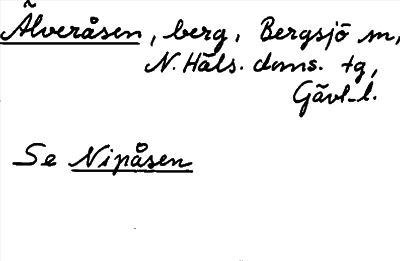 Älveråsen, berg, Bergsjö sn,
N. Häls. doms. tg,
Gävl. l.
Se Nipåsen